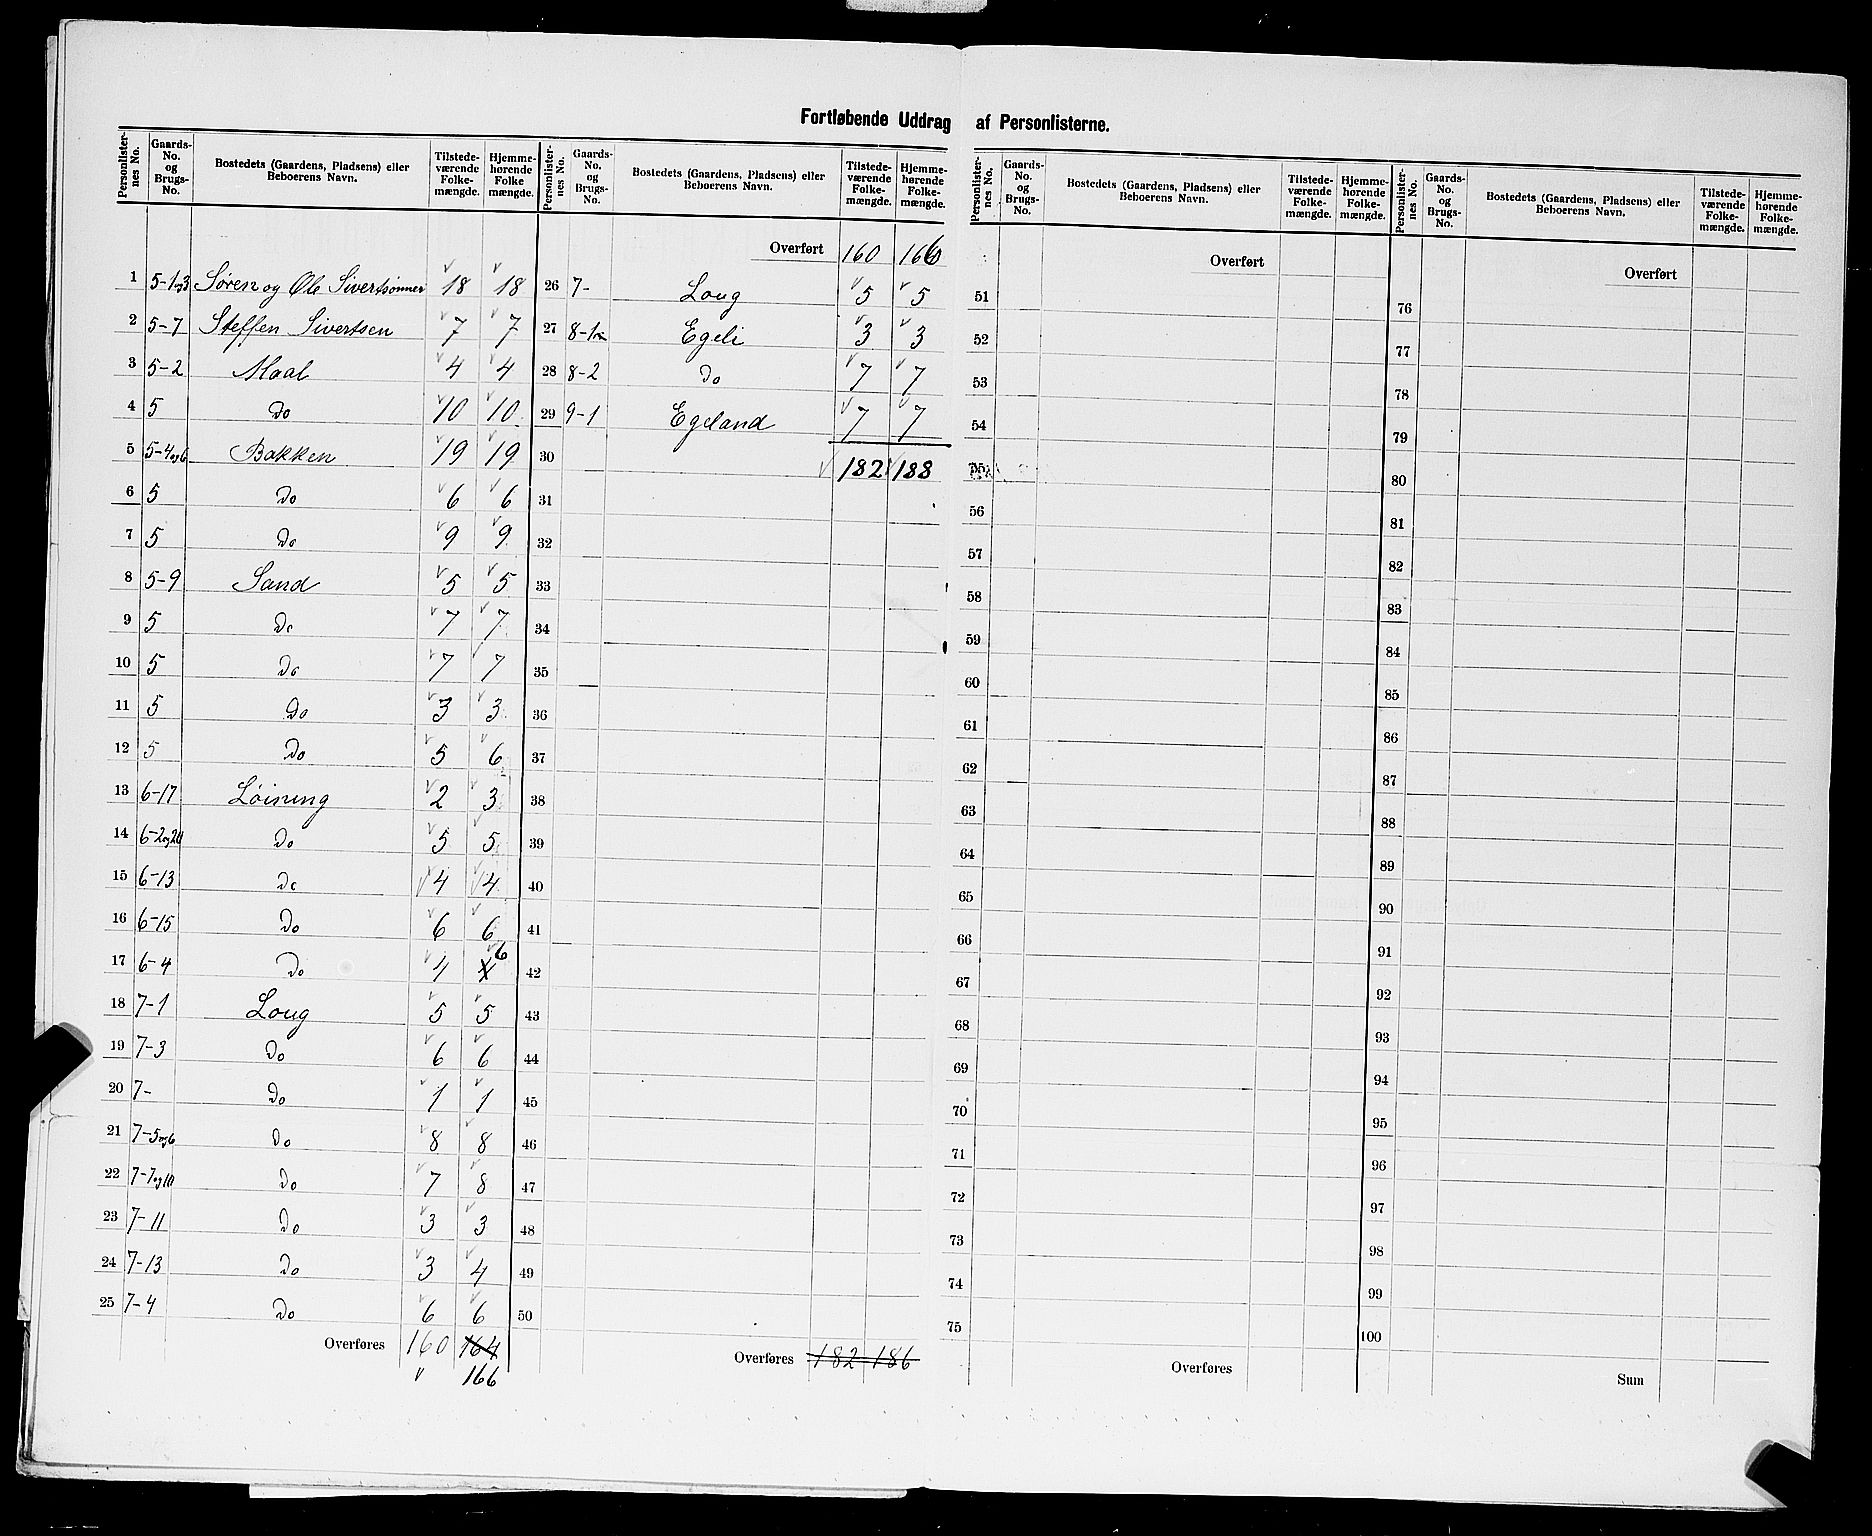 Fortløbende Uddrag af Personlisterne.
Personlisternes No. | Gaards-No. og Brugs-No. | Bostedets (Gaardens, Pladsens) eller Beboerens Navn. | Tilstedeværende Folkemængde. | Hjemmehørende Folkemængde.
1 5-1og3 Søren og Ole Sivertsønner 18 18
2 5-7 Steffen Sivertsen 7 7
3 5-2 Moal 4 4
4 5 Do 10 10
5 5-4og6 Bakken 19 19
6 5 Do 6 6
7 5 Do 9 9
8 5-9 Sand 5 5
9 5 Do 7 7
10 5 Do 7 7
11 5 Do 3 3
12 5 Do 5 6
13 6-17 Løining 2 3
14 6-2og20 Do 5 5
15 6-13 Do 4 4
16 6-15 Do 6 6
17 6-4 Do 4 4 6
18 7-1 Loug 5 5
19 7-3 Do 6 6
20 7- Do 1 1
21 7-5og6 Do 8 8
22 7-7og10 Do 7 8
23 7-11 Do 3 3
24 7-13 Do 3 4
25 7-4 Do 6 6
Overføres 160 164
166
Personlisternes No. | Gaards-No. og Brugs-No. | Bostedets (Gaardens, Pladsens) eller Beboerens Navn. | Tilstedeværende Folkemængde. | Hjemmehørende Folkemængde.
Overført 160 166
26 7- Loug 5 5
27 8-1 Egeli 3 3
28 8-2 Do 7 7
29 9-1 Egeland 7 7
30 182 188
31
32
33
34
35
36
37
38
39
40
41
42
43
44
45
46
47
48
49
50
Overføres 182 186
Personlisternes No. | Gaards-No. og Brugs-No. | Bostedets (Gaardens, Pladsens) eller Beboerens Navn. | Tilstedeværende Folkemængde. | Hjemmehørende Folkemængde.
Overført
51
52
53
54
55
56
57
58
59
60
61
62
63
64
65
66
67
68
69
70
71
72
73
74
75
Overføres
Personlisternes No. | Gaards-No. og Brugs-No. | Bostedets (Gaardens, Pladsens) eller Beboerens Navn. | Tilstedeværende Folkemængde. | Hjemmehørende Folkemængde.
Overført
76
77
78
79
80
81
82
83
84
85
86
87
88
89
90
91
92
93
94
95
96
97
98
99
100
Sum